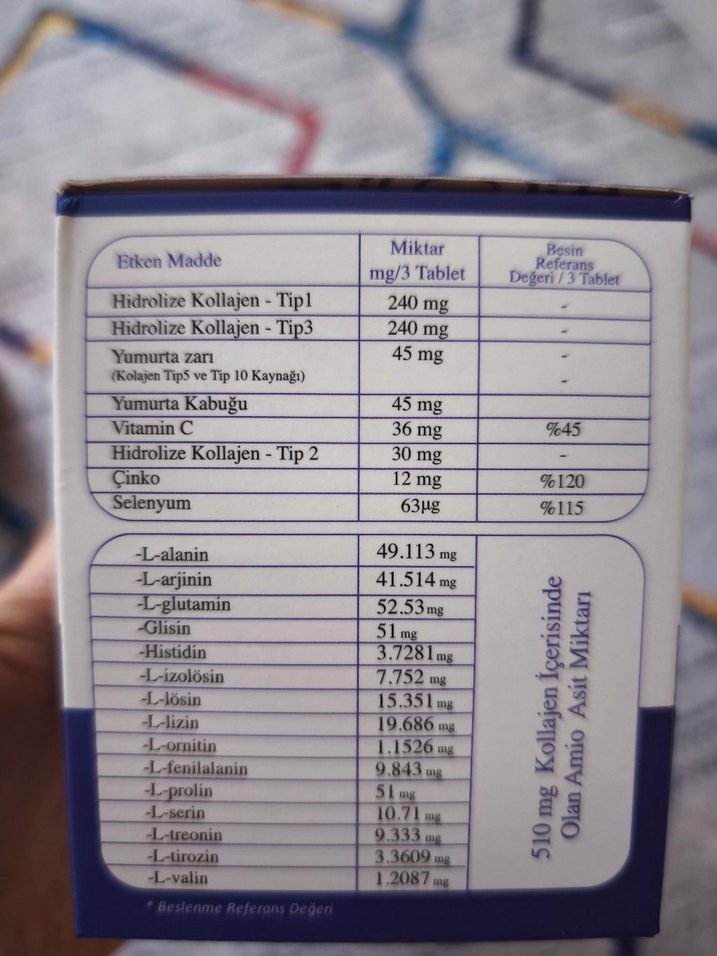 Etken Madde
Miktar
mg/3 Tablet
Besin
Referans
Değeri / 3 Tablet
Hidrolize Kollajen - Tip1 240 mg -
Hidrolize Kollajen - Tip3 240 mg -
Yumurta zarı 45 mg -
(Kolajen Tip5 ve Tip 10 Kaynağı) -
Yumurta Kabuğu 45 mg
Vitamin C 36 mg %45
Hidrolize Kollajen - Tip 2 30 mg -
Çinko 12 mg %120
Selenyum 63µg %115
-L-alanin 49.113 mg
-L-arjinin 41.514 mg
-L-glutamin 52.53 mg
-Glisin 51 mg
-Histidin 3.7281 mg
-L-izolösin 7.752 mg
-L-lösin 15.351 mg
-L-lizin 19.686 mg
-L-ornitin 1.1526 mg
-L-fenilalanin 9.843 mg
-L-prolin 51 mg
-L-serin 10.71 mg
-L-treonin 9.333 mg
-L-tirozin 3.3609 mg
-L-valin 1.2087 mg
510 mg Kollajen İçerisinde
Olan Amio Asit Miktarı
* Beslenme Referans Değeri